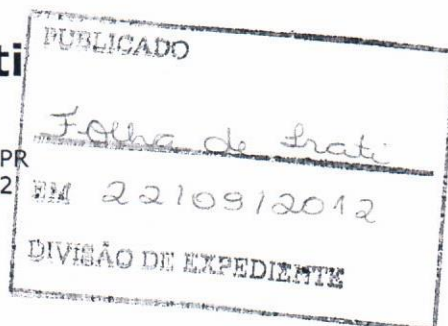 ti
PUBLICADO
Folha de Irati
PR
2
EM 22/09/2012
DIVISÃO DE EXPEDIENTE